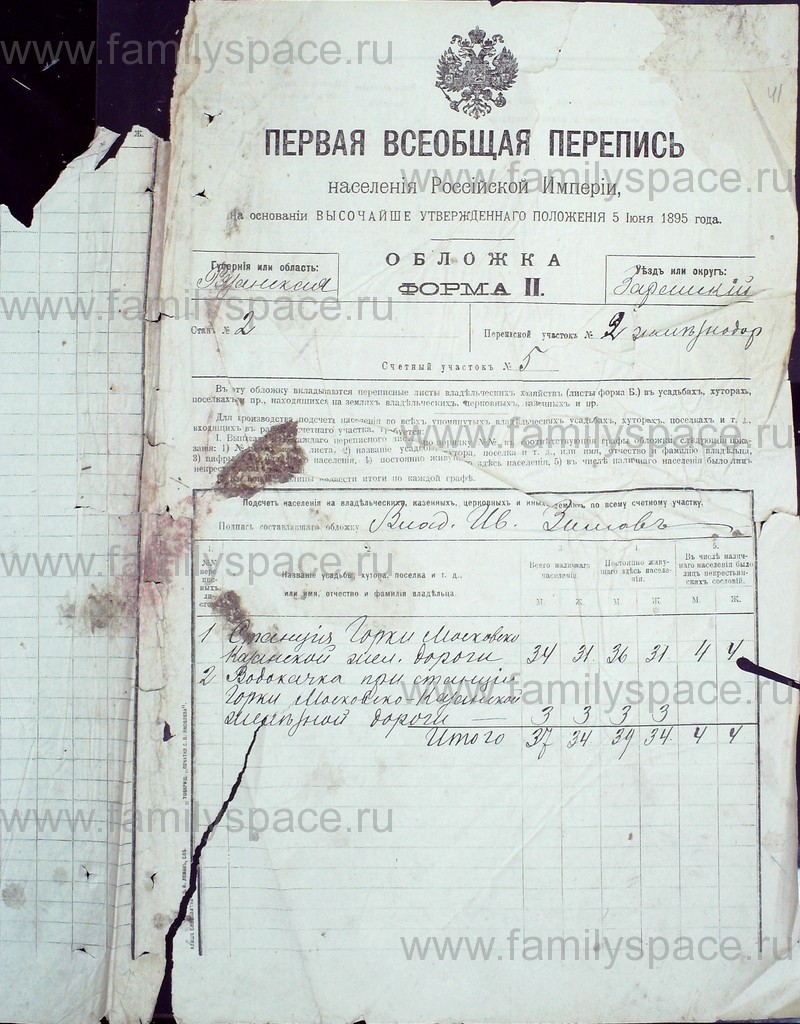 41
ПЕРВАЯ ВСЕОБЩАЯ ПЕРЕПИСЬ
населенія Россійской Имперіи,
на основаніи ВЫСОЧАЙШЕ УТВЕРЖДЕННАГО ПОЛОЖЕНІЯ 5 Іюня 1895 года.
ОБЛОЖКА
ФОРМА II.
Губернія или область:
Рязанская
Уѣздъ или округъ:
Зарайскій
Станъ № 2
Переписной участокъ № 2 желѣзнодор
Счетный участокъ № 5
Въ эту обложку вкладываются переписные листы владѣльческихъ хозяйствъ (листы форма Б.) въ усадьбахъ, хуторахъ,
поселкахъ и пр., находящихся на земляхъ владѣльческихъ, церковныхъ, казенныхъ и пр.
Для производства подсчета населенія по всѣмъ упомянутымъ владѣльческихъ усадьбъ, хуторахъ, поселкахъ и т. д.,
входящихъ въ счетнаго участка,
I. каждаго переписного №, соотвѣтствующія графы обложки слѣдующія пока-
занія: 1) № листа, 2) названіе хутора, поселка и т. д., или имя, отчество и фамилію владѣльца,
3) цифры населенія, 4) постоянно живущаго здѣсь населенія, 5) въ числѣ наличнаго населенія было лицъ
некресть
вывести итоги по каждой графѣ.
Подсчетъ населенія на владѣльческихъ, казенныхъ, церковныхъ и иныхъ земляхъ, по всему счетному участку.
Подпись составлявшаго обложку Влад. Ив. Зимовъ
1.
№№ пере пис ныхъ ли стовъ
2.
Названіе усадьбы, хутора, поселка и т. д.,
или имя, отчество и фамилія владѣльца.
3.
Всего наличнаго населенія.
М. Ж.
4.
Постоянно живущаго здѣсь населенія.
М. Ж.
5.
Въ числѣ наличнаго населенія было лицъ некрестьянскихъ сословій.
М. Ж.
1 Станція Горки Московско
Казанской жел. дороги 34 31 36 31 4 4
2 Водокачка при станціи
Горки Московско-Казанской
желѣзной дороги — 3 3 3 3
Итого 37 34 39 34 4 4
Ж.
www.familyspace.ru
www.familyspace.ru
www.familyspace.ru
www.familyspace.ru
www.familyspace.ru
www.familyspace.ru
www.familyspace.ru
www.familyspace.ru